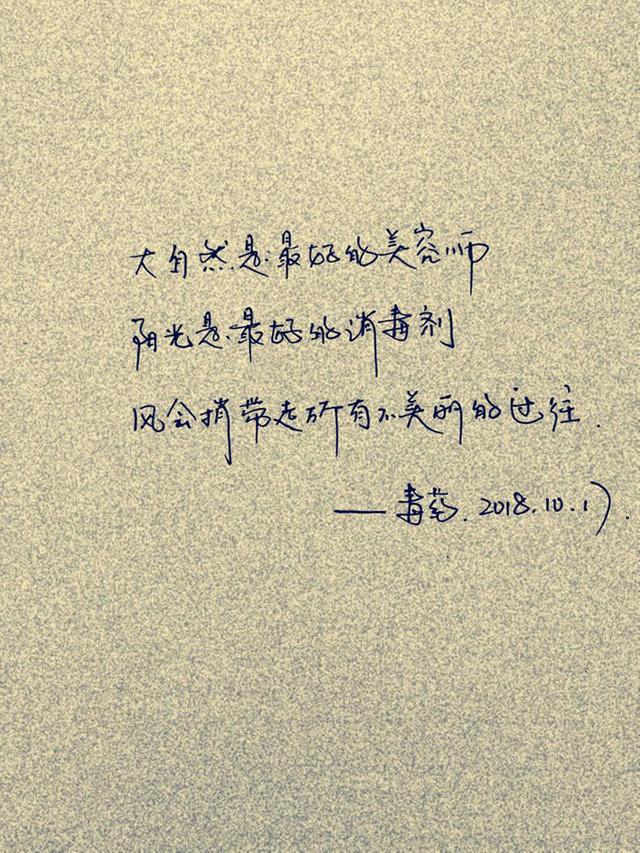 大自然是最好的美容师
阳光是最好的消毒剂
风会捎带走所有不美丽的过往.
——毒药.2018.10.17.